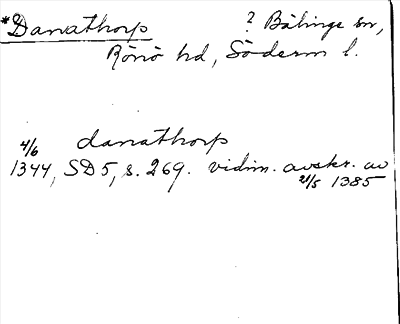 *Danathorp ? Bälinge sn,
Rönö hd, Söderm l.
danathorp
4/6 1344, SD5, s. 269. vidim. avskr. av
21/5 1385